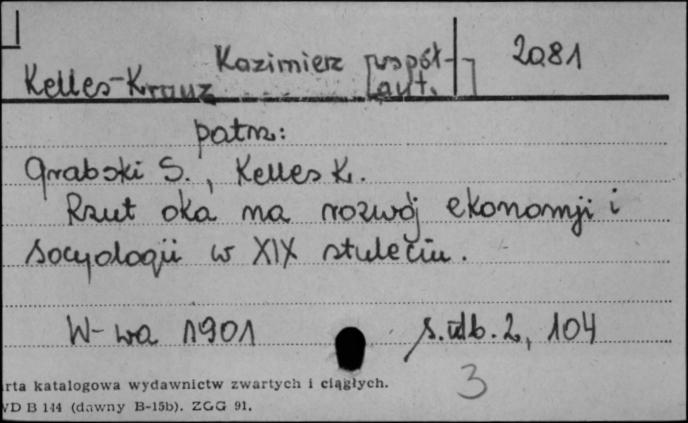 Kazimierz [współ- 2081
Kelles-Krauz aut.]
patrz:
Grabski S., Kelles K.
Rzut oka na rozwój ekonomji i
socyologii w XIX stuleciu.
W-wa 1901 s. nlb. 2, 104
3
arta katalogowa wydawnictw zwartych i ciągłych.
WD B 144 (dawny B-15b). ZGG 91.